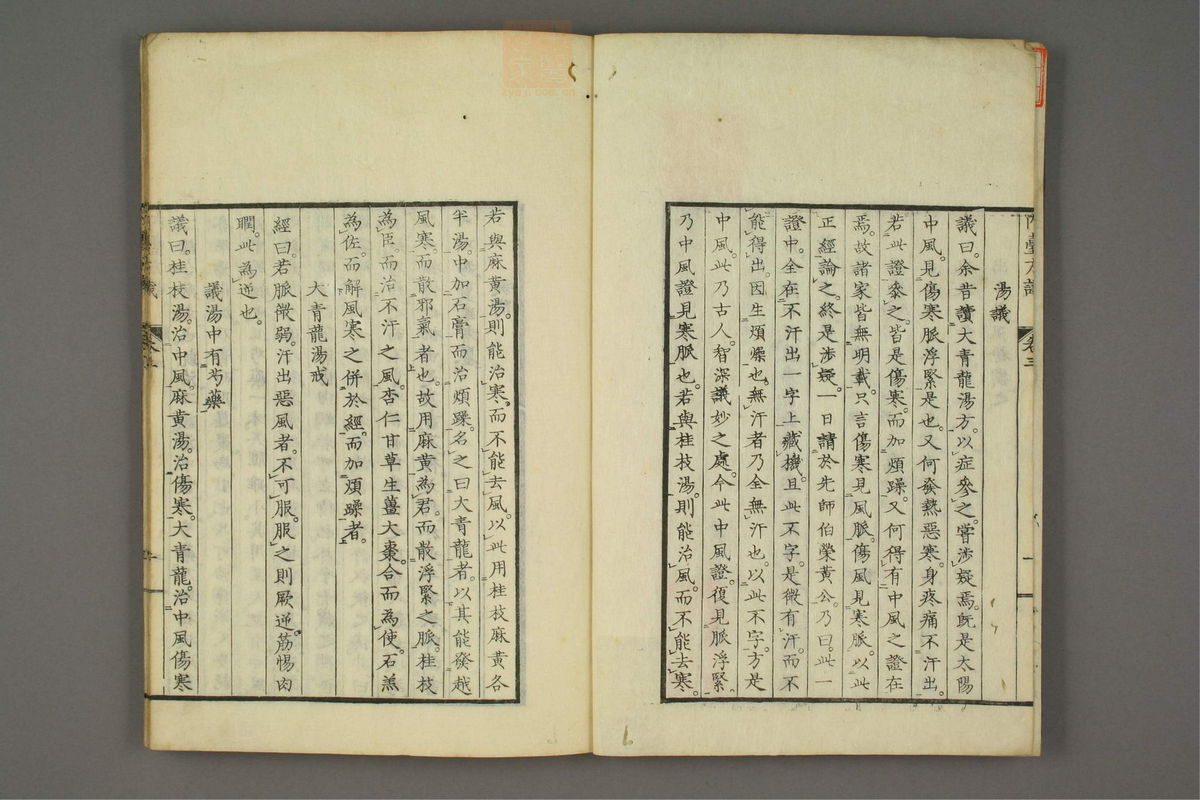 湯議
議曰。余昔讀大青龍湯方。以症參之。嘗涉疑焉。既是太陽
中風。見傷寒脈浮緊是也。又何發熱惡寒。身疼痛不汗出。
若此證參之。皆是傷寒。而加煩躁。又何得有中風之證在
焉。故諸家皆無明載。只言傷寒見風脈。傷風見寒脈。以此
正經論之。終是涉疑。一日請於先師伯榮黃公。乃曰。此一
證中。全在不汗出一字上藏機。且此不字。是微有汗。而不
能得出。因生煩燥也。無汗者乃全無汗也。以此不字。方是
中風。此乃古人。智深議妙之處。今此中風證。復見脈浮緊。
乃中風證見寒脈也。若與桂枝湯。則能治風。而不能去寒。
若與麻黃湯。則能治寒。而不能去風。以此用桂枝麻黃各
半湯。中加石膏而治煩躁。名之曰大青龍者。以其能發越
風寒。而散邪氣者也。故用麻黃為君。而散浮緊之脈。桂枝
為臣。而治不汗之風。杏仁甘草生薑大棗。合而為使。石羔
為佐。而解風寒之併於經。而加煩躁者。
大青龍湯戒
經曰。若脈微弱。汗出惡風者。不可服。服之則厥逆。筋惕肉
瞤。此為逆也。
議湯中有芍藥
議曰。桂枝湯。治中風。麻黃湯。治傷寒。大青龍。治中風傷寒